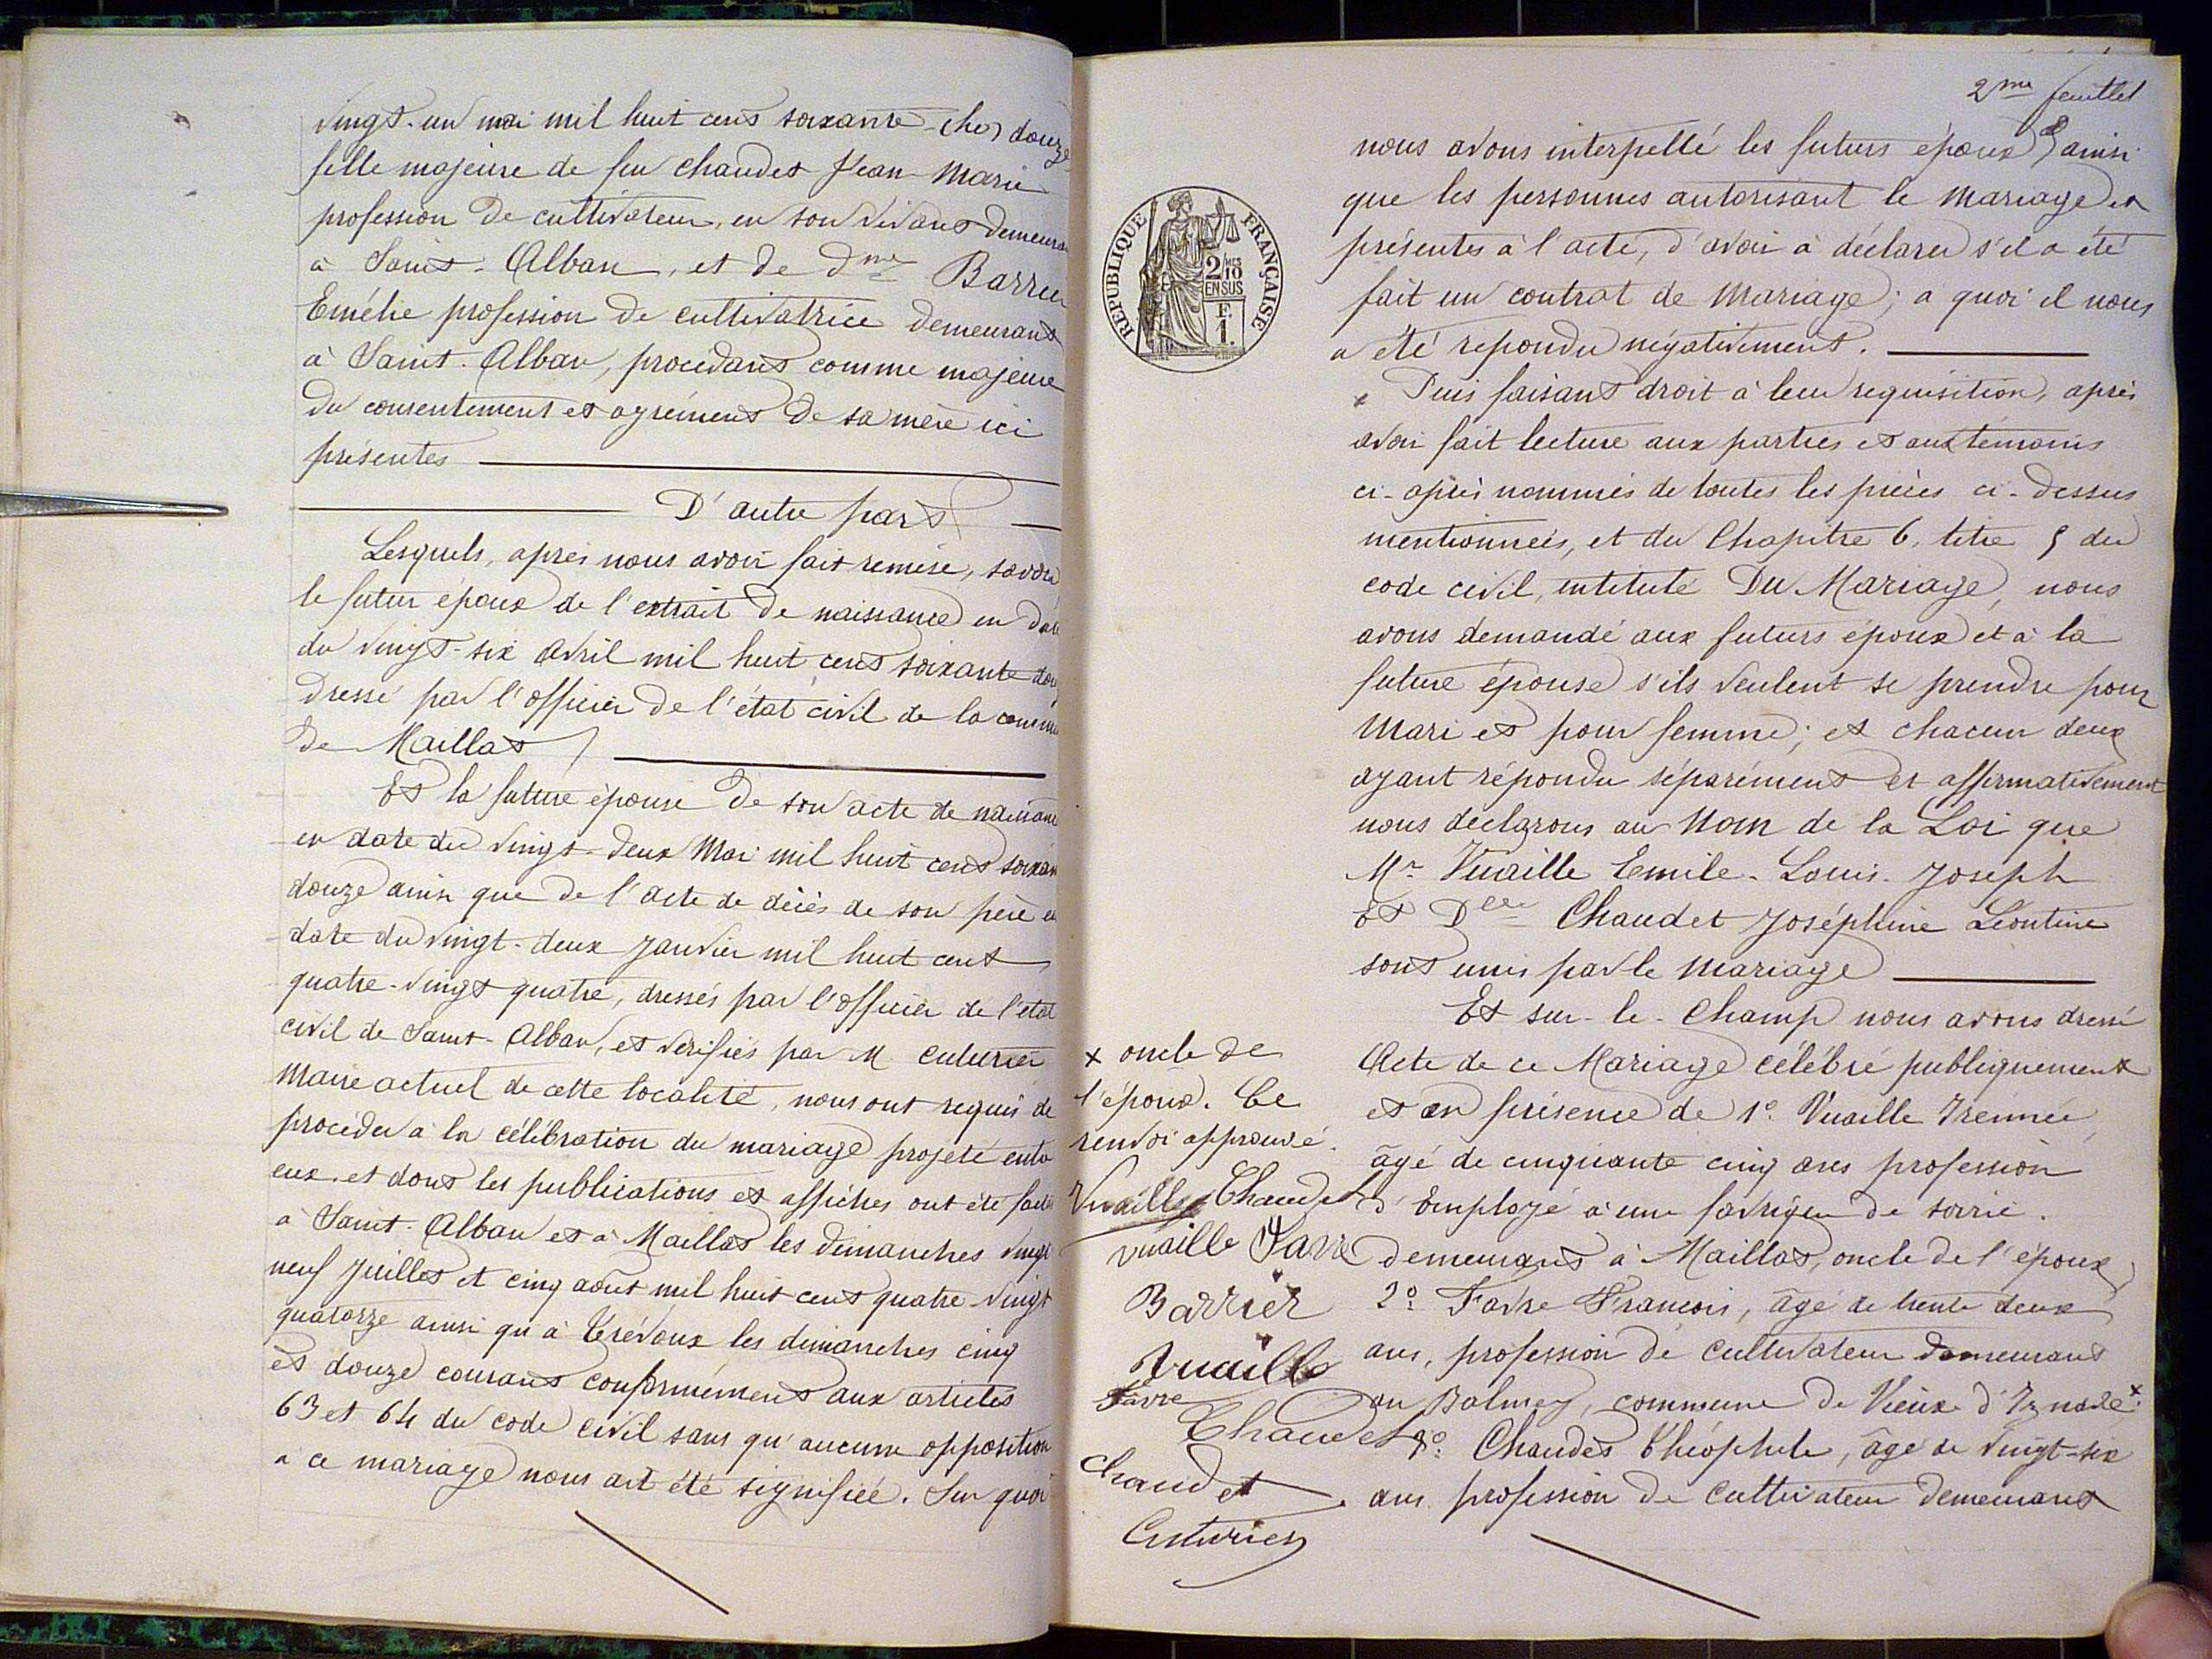 vingt-un mai mil huit cent soixante douze
fille majeure de feu Chaudet Jean-Marie
profession de cultivateur, en son vivant demeurant
à Saint-Alban, et de Dme Barrier
Emélie profession de cultivatrice demeurant
à Saint-Alban, procédant comme majeure
du consentement et agrément de sa mère ici
présentes
D'autre part
Lesquels, après nous avoir fait remise, savoir
le futur époux de l'extrait de naissance en date
du vingt-six Avril mil huit cent soixante dou
dressé par l'officier de l'état civil de la commune
de Maillat
Et la future épouse de son acte de naissance
en date du vingt-deux Mai mil huit cent soixante
douze ainsi que de l'acte de décès de son père en
date du vingt-deux Janvier mil huit cent
quatre-vingt quatre, dressés par l'officier de l'état
civil de Saint-Alban, et vérifiés par M Cuturier
Maire actuel de cette localité, nous ont requis de
procéder à la célébration du mariage projeté entre
eux, et dont les publications et affiches ont été faites
à Saint-Alban et à Maillat les dimanches vingt
neuf Juillet et cinq août mil huit cent quatre-vingt
quatorze ainsi qu'à Trévoux les dimanches cinq
et douze courant conformément aux articles
63 et 64 du code civil sans qu'aucune opposition
à ce mariage nous ait été signifiée. Sur quoi
2me feuillet
nous avons interpellé les futurs époux, ainsi
que les personnes autorisant le mariage et
présentes à l'acte, d'avoir à déclarer s'il a été
fait un contrat de Mariage; à quoi il nous
a été répondu négativement.
Puis faisant droit à leur requisition, après
avoir fait lecture aux parties et aux témoins
ci-après nommés de toutes les pièces ci-dessus
mentionnées, et du Chapitre 6, titre 5 du
code civil, intitulé Du Mariage, nous
avons demandé aux futurs époux et à la
future épouse s'ils veulent se prendre pour
Mari et pour femme; et chacun deux
ayant répondu séparément et affirmativement
nous déclarons au Nom de la Loi que
Mr Vuaille Emile-Louis-Joseph
Et Delle Chaudet Joséphine Léontine
sont unis par le mariage
Et sur-le-Champ nous avons dressé
Acte de ce Mariage célébré publiquement
et en présence de 1º Vuaille Irénnée,
âgé de cinquante cinq ans profession
d'Employé à une fabrique de soirie.
demeurant à Maillat, oncle de l'époux
2º Favre François, âgé de trente deux
ans, profession de cultivateur demeurant
au Balmey, commune de Vieux d'Iznave x
3º Chaudet Théophile, âgé de vingt-six
ans profession de cultivateur demeurant
RÉPUBLIQUE FRANÇAISE
2/MES
10
EN SUS
F.
1.
x oncle de
l'époux. Ce
renvoi approuvé.
Vuaille Chaudet
Vuaille Favre
Barrier
Vuaille
Favre
Chaudet
Chaudet
Cuturier